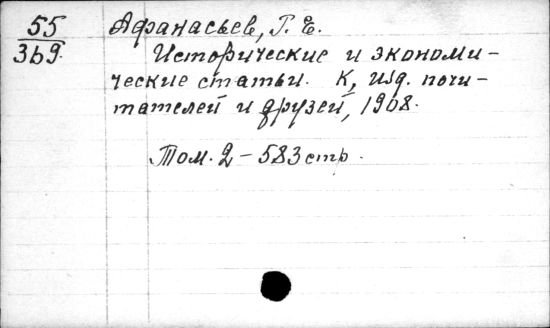 55 Афанасьев, Г. Е.
369. Исторические и экономи-
ческие статьи. К, изд. почи-
тателей и друзей, 1908.
Том. 2 - 583 стр.